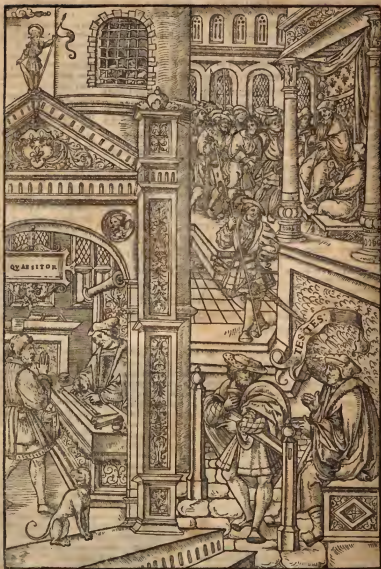 QVAESITOR
TESTES